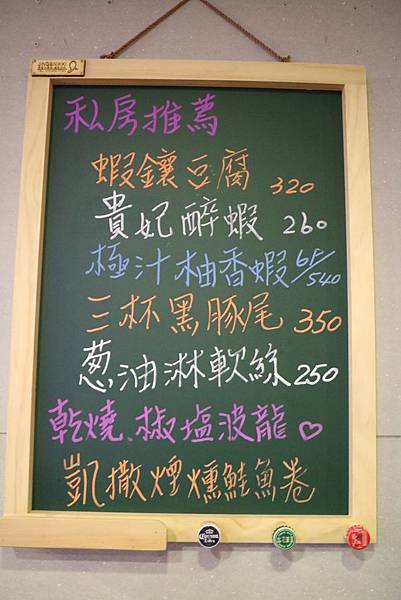 私房推薦
蝦鑲豆腐 320
貴妃醉蝦 260
極汁柚香蝦 6P/540
三杯黑豚尾 350
葱油淋軟絲 250
乾燒、椒塩波龍♡
凱撒煙燻鮭魚卷
Corona
Extra